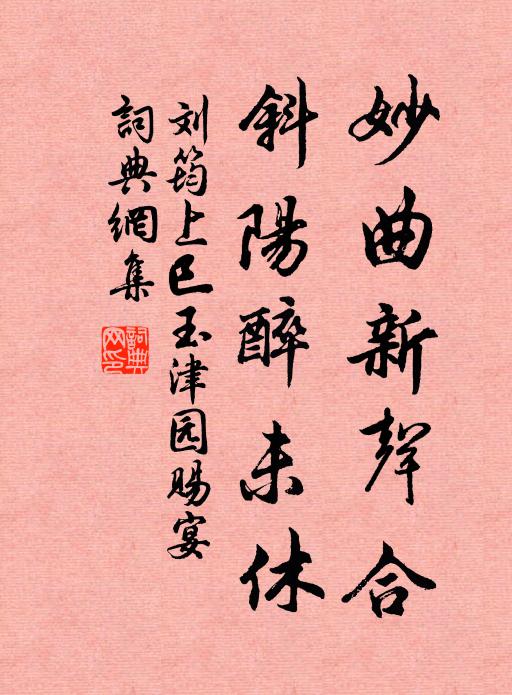 妙曲新聲合
斜陽醉未休
刘筠上巳玉津园赐宴
詞典網集
詞典网印